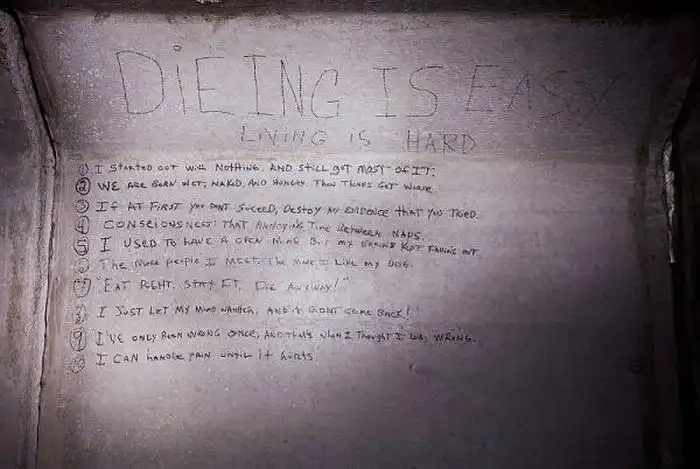 DiEING IS EASY
LIVING IS HARD
① I STARTED OUT WITH NOTHING, AND STILL GOT MOST OF IT.
② WE ARE BORN WET, NAKED, AND HUNGRY. THEN THINGS GET WORSE.
③ If AT FIRST YOU DONT SUCEED, DESTOY ANY EVIDENCE THAT YOU TRIED.
④ CONSCIOUSNESS: THAT ANNOYING TIME BETWEEN NAPS.
⑤ I USED TO HAVE A OPEN MIND BUT MY BRAINS KEPT FALLING OUT.
⑥ THE MORE PEOPLE I MEET, THE MORE I LIKE MY DOG.
⑦ "EAT RIGHT. STAY FIT. DIE ANYWAY!"
⑧ I JUST LET MY MIND WANDER, AND IT DIDNT COME BACK!
⑨ I'VE ONLY BEEN WRONG ONCE, AND THATS WHEN I THOUGHT I WAS WRONG.
⑩ I CAN HANDLE PAIN UNTIL IT HURTS